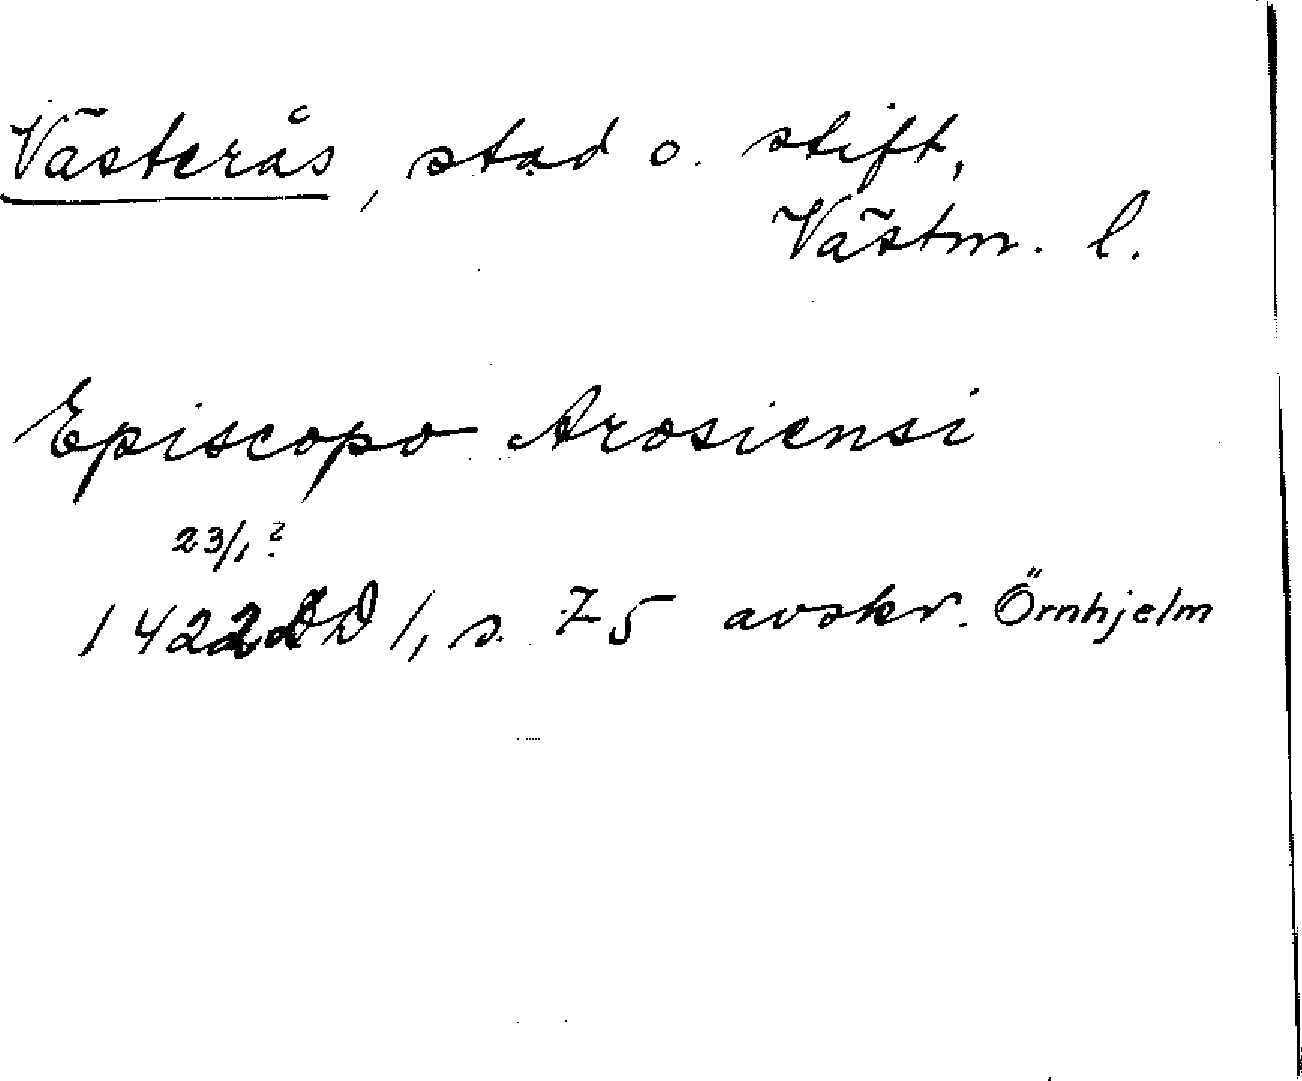 Västerås, stad o. stift,
Västm. l.
Episcopo Arosiensi
23/1 ?
1422 DD 1, s. 75 avskr. Örnhjelm